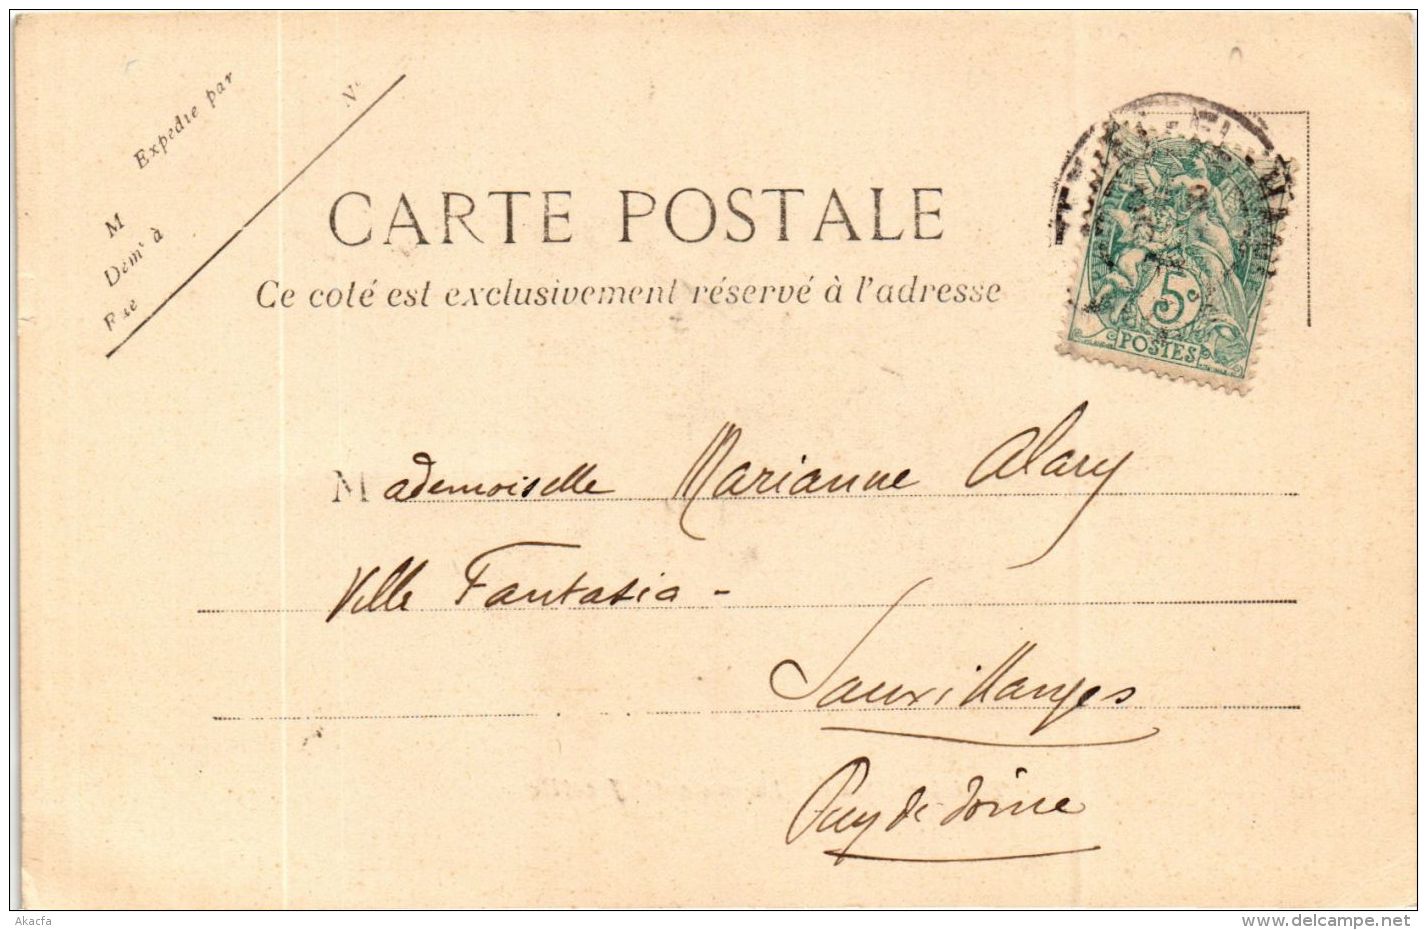 Expédie par
M
Dem^t à
Rue
N^o
CARTE POSTALE
Ce coté est exclusivement réservé à l'adresse
5c
POSTES
Mademoiselle Marianne Alary
Ville Fantasia -
Sauxillanges
Puy de Dôme
Akacfa
delcampe.net